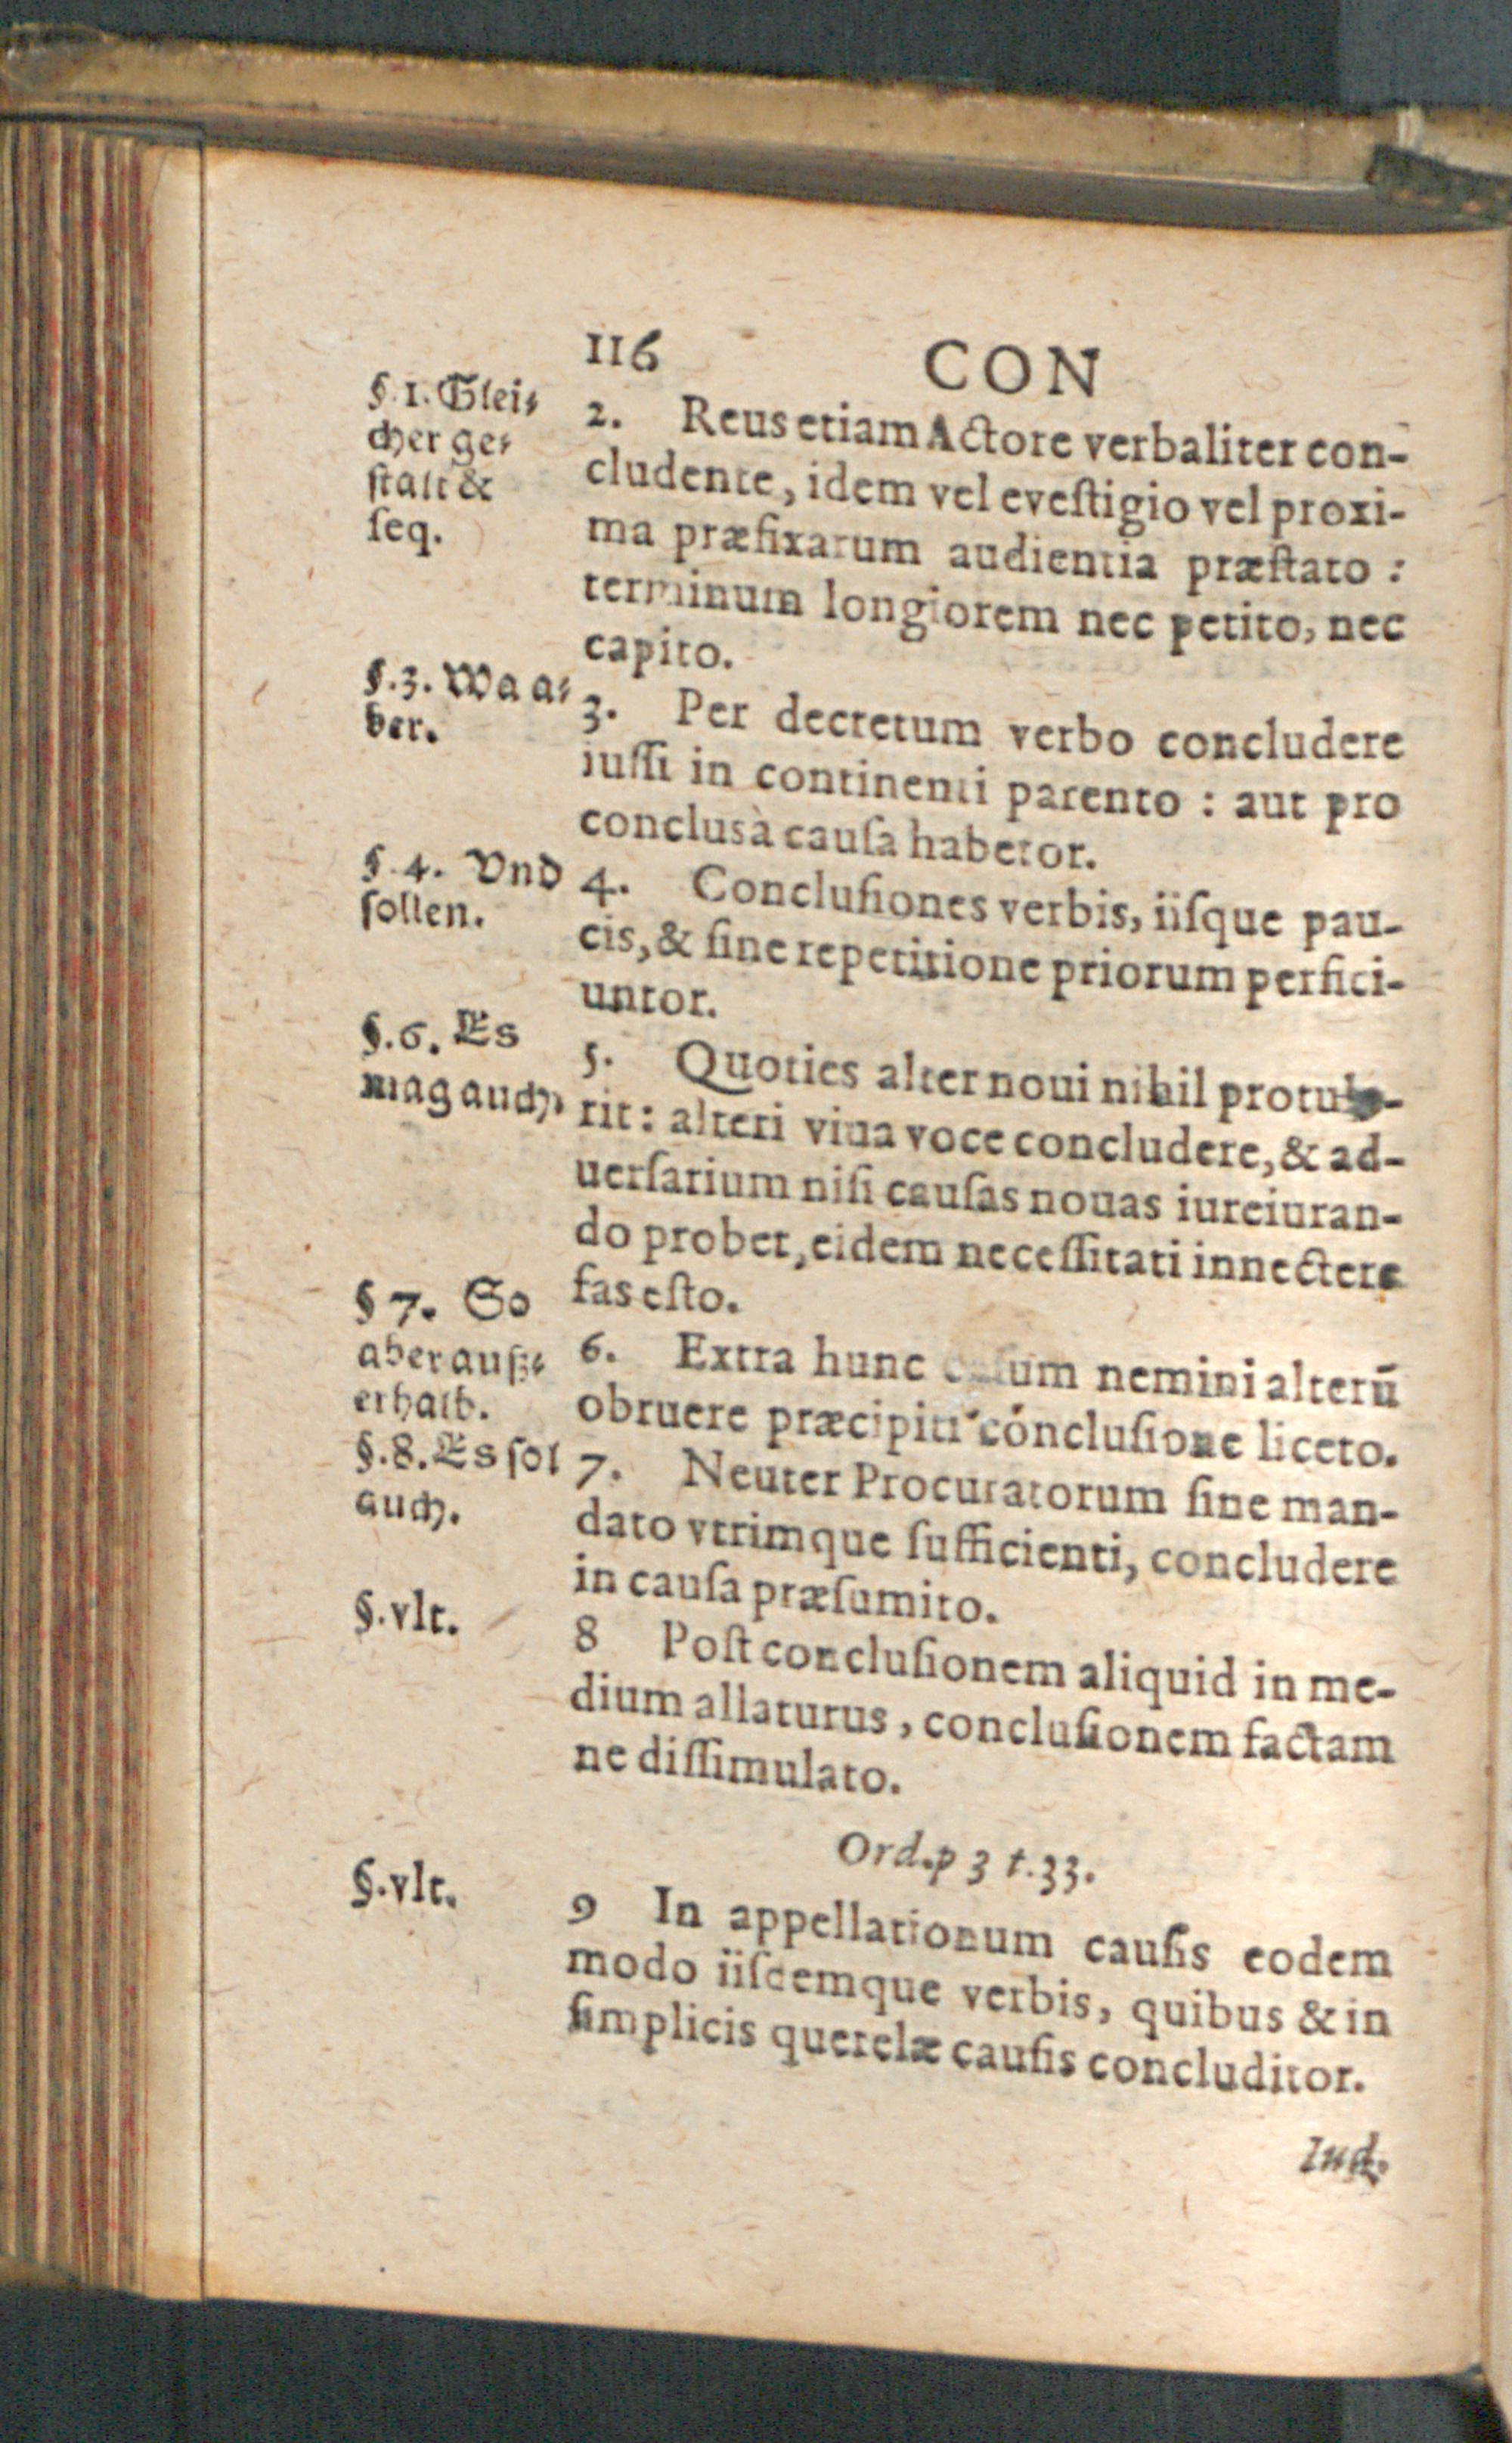 116 CON
§.1. Glei⸗
cher ge⸗
ſtalt &
ſeq.
2. Reus etiam Actore verbaliter con-
cludente, idem vel eveſtigio vel proxi-
ma præfixarum audientia præſtato :
terminum longiorem nec petito, nec
capito.
§.3. Wa a⸗
ber.
3. Per decretum verbo concludere
iuſſi in continenti parento : aut pro
conclusà cauſa habetor.
§.4. Vnd
ſollen.
4. Concluſiones verbis, iiſque pau-
cis, & ſine repetitione priorum perfici-
untor.
§.6. Es
mag auch,
5. Quoties alter noui nihil protule-
rit: alteri viua voce concludere, & ad-
uerſarium niſi cauſas nouas iureiuran-
do probet, eidem neceſſitati innectere
fas eſto.
§ 7. So
aber auß⸗
erhalb.
6. Extra hunc caſum nemini alterū
obruere præcipiti concluſione liceto.
§.8. Es ſol
auch.
7. Neuter Procuratorum ſine man-
dato vtrimque ſufficienti, concludere
in cauſa præſumito.
§.vlt.
8 Poſt concluſionem aliquid in me-
dium allaturus, concluſionem factam
ne diſſimulato.
Ord.p 3 t.33.
§.vlt.
9 In appellationum cauſis eodem
modo iiſdemque verbis, quibus & in
ſimplicis querelæ cauſis concluditor.
Iud.